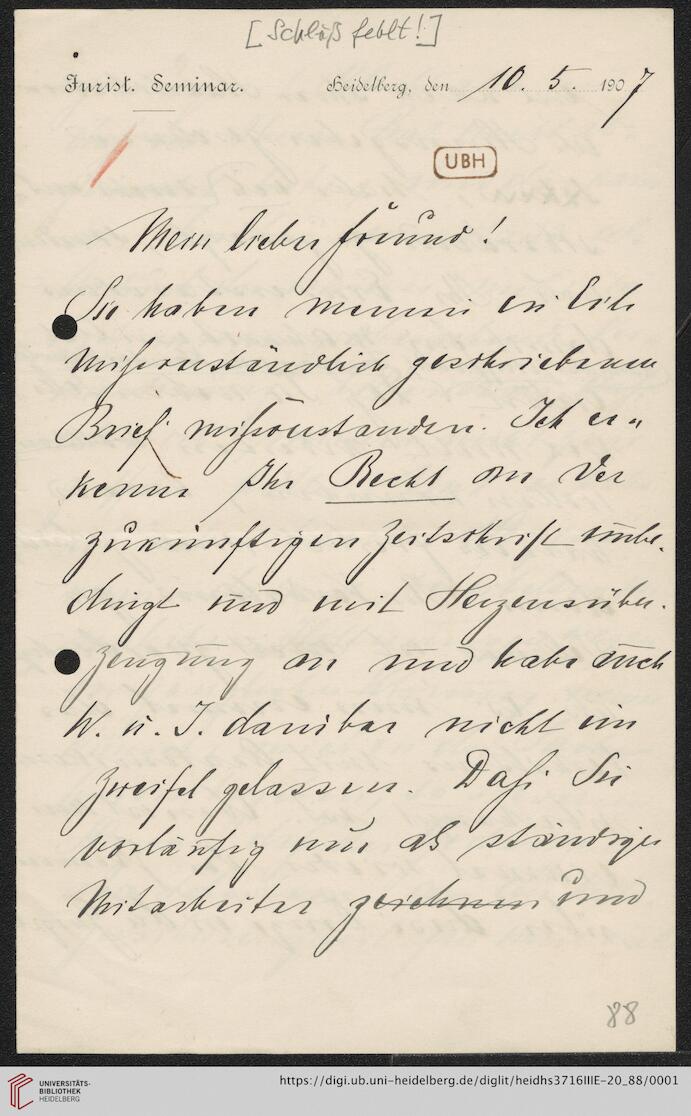 [Schluß fehlt!]
Jurist. Seminar. Heidelberg, den 10. 5. 1907
UBH
Mein lieber Freund!
Sie haben meinen in Eile
mißverständlich geschriebenen
Brief mißverstanden. Ich er-
kenne Ihr Recht an der
zukünftigen Zeitschrift unbe-
dingt und mit Herzensüber-
zeugung an und habe auch
W. u. J. darüber nicht im
Zweifel gelassen. Daß Sie
vorläufig nur als ständiger
Mitarbeiter zeichnen und
88
UNIVERSITÄTS-
BIBLIOTHEK
HEIDELBERG
https://digi.ub.uni-heidelberg.de/diglit/heidhs3716IIIE-20_88/0001